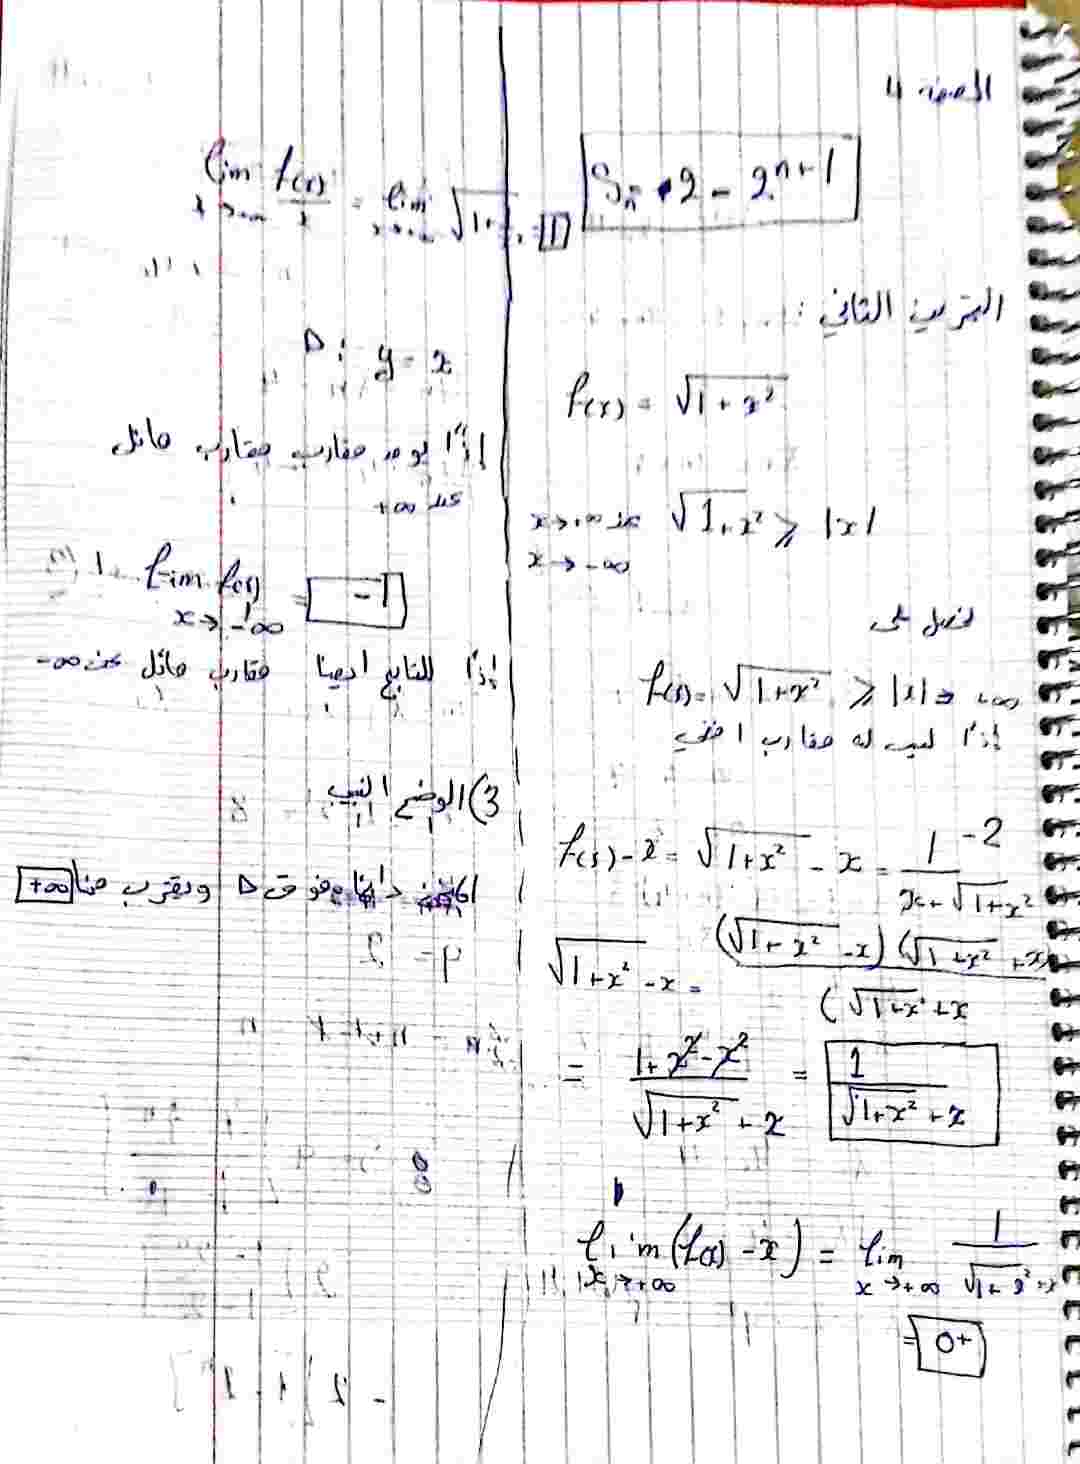 الصفحة 4
Sₙ = 2 - 2ⁿ⁺¹
التمرين الثاني :
f(x) = √(1+x²)
x→+∞ عند √(1+x²) ⩾ |x|
x→-∞
نحصل على
f(x) = √(1+x²) ⩾ |x| = +∞
إذًا ليس له مقارب افقي
f(x) - x = √(1+x²) - x = 1/(x+√(1+x²)) -2
√(1+x²) - x = (√(1+x²) - x)(√(1+x²) + x) / (√(1+x²) + x
= (1+x²-x²)/(√(1+x²) + x) = 1/(√(1+x²) + x)
lim x→+∞ (f(x) - x) = lim x→+∞ 1/(√(1+x²)+x)
= 0+
lim f(x)/x = lim √(1+ = 1
Δ : y = x
إذًا يوجد مقارب مقارب مائل
عند +∞
lim x→-∞ f(x)/x = -1
إذًا للتابع ايضا مقارب مائل عند -∞
3) الوضع النسبي
دائما فوق Δ ويقترب منها +∞